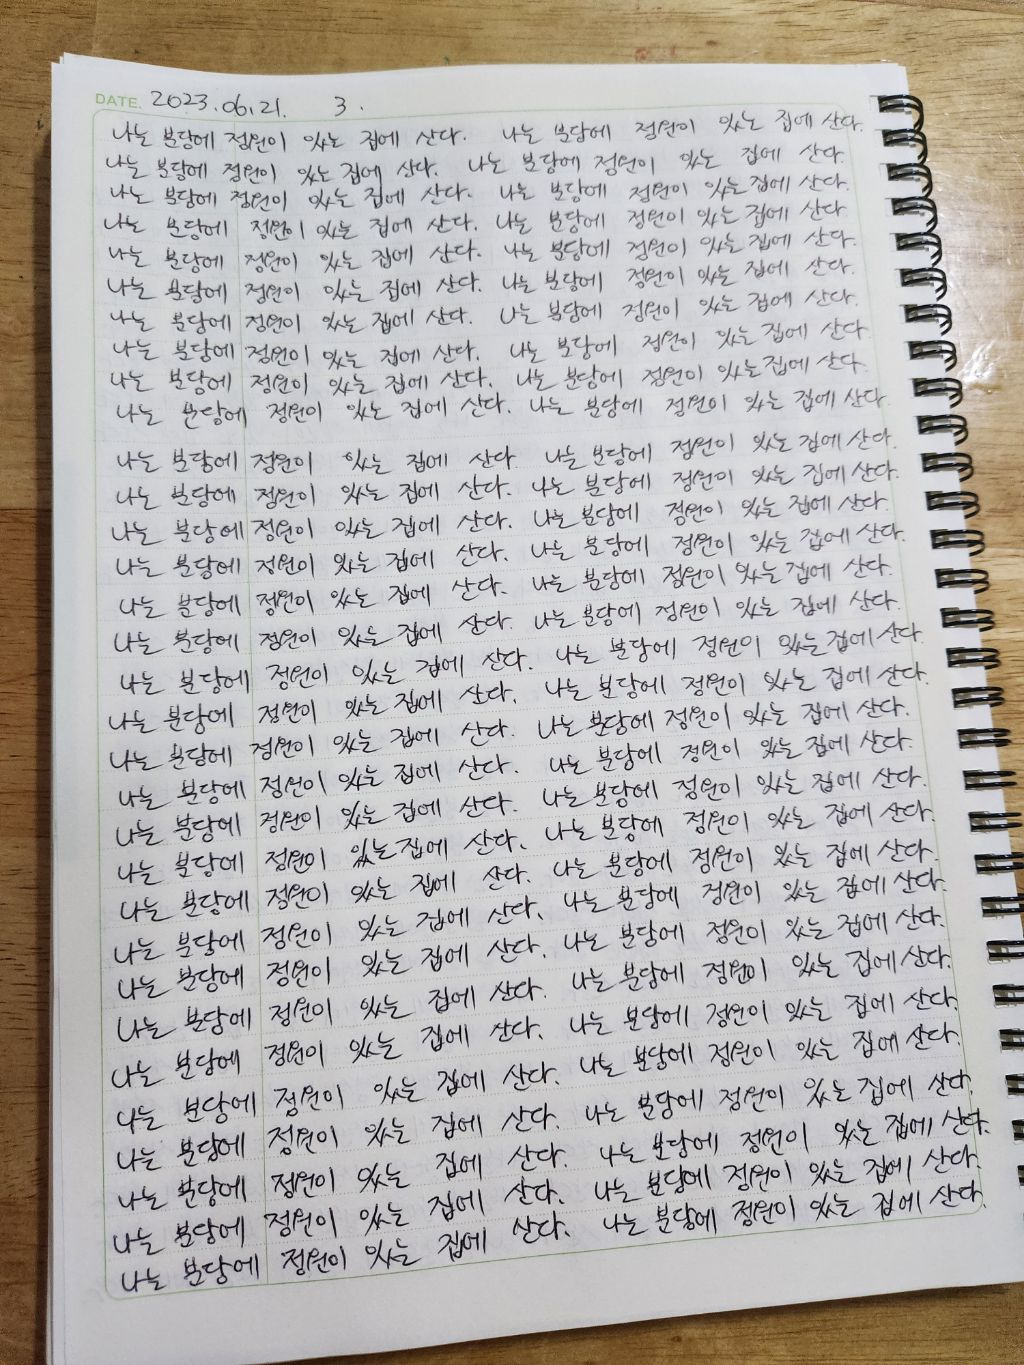 DATE. 2023.06.21. 3.
나는 분당에 정원이 있는 집에 산다. 나는 분당에 정원이 있는 집에 산다.
나는 분당에 정원이 있는 집에 산다. 나는 분당에 정원이 있는 집에 산다.
나는 분당에 정원이 있는 집에 산다. 나는 분당에 정원이 있는 집에 산다.
나는 분당에 정원이 있는 집에 산다. 나는 분당에 정원이 있는 집에 산다.
나는 분당에 정원이 있는 집에 산다. 나는 분당에 정원이 있는 집에 산다.
나는 분당에 정원이 있는 집에 산다. 나는 분당에 정원이 있는 집에 산다.
나는 분당에 정원이 있는 집에 산다. 나는 분당에 정원이 있는 집에 산다.
나는 분당에 정원이 있는 집에 산다. 나는 분당에 정원이 있는 집에 산다.
나는 분당에 정원이 있는 집에 산다. 나는 분당에 정원이 있는 집에 산다.
나는 분당에 정원이 있는 집에 산다. 나는 분당에 정원이 있는 집에 산다.
나는 분당에 정원이 있는 집에 산다. 나는 분당에 정원이 있는 집에 산다.
나는 분당에 정원이 있는 집에 산다. 나는 분당에 정원이 있는 집에 산다.
나는 분당에 정원이 있는 집에 산다. 나는 분당에 정원이 있는 집에 산다.
나는 분당에 정원이 있는 집에 산다. 나는 분당에 정원이 있는 집에 산다.
나는 분당에 정원이 있는 집에 산다. 나는 분당에 정원이 있는 집에 산다.
나는 분당에 정원이 있는 집에 산다. 나는 분당에 정원이 있는 집에 산다.
나는 분당에 정원이 있는 집에 산다. 나는 분당에 정원이 있는 집에 산다.
나는 분당에 정원이 있는 집에 산다. 나는 분당에 정원이 있는 집에 산다.
나는 분당에 정원이 있는 집에 산다. 나는 분당에 정원이 있는 집에 산다.
나는 분당에 정원이 있는 집에 산다. 나는 분당에 정원이 있는 집에 산다.
나는 분당에 정원이 있는 집에 산다. 나는 분당에 정원이 있는 집에 산다.
나는 분당에 정원이 있는 집에 산다. 나는 분당에 정원이 있는 집에 산다.
나는 분당에 정원이 있는 집에 산다. 나는 분당에 정원이 있는 집에 산다.
나는 분당에 정원이 있는 집에 산다. 나는 분당에 정원이 있는 집에 산다.
나는 분당에 정원이 있는 집에 산다. 나는 분당에 정원이 있는 집에 산다.
나는 분당에 정원이 있는 집에 산다. 나는 분당에 정원이 있는 집에 산다.
나는 분당에 정원이 있는 집에 산다. 나는 분당에 정원이 있는 집에 산다.
나는 분당에 정원이 있는 집에 산다. 나는 분당에 정원이 있는 집에 산다.
나는 분당에 정원이 있는 집에 산다. 나는 분당에 정원이 있는 집에 산다.
나는 분당에 정원이 있는 집에 산다. 나는 분당에 정원이 있는 집에 산다.
나는 분당에 정원이 있는 집에 산다. 나는 분당에 정원이 있는 집에 산다.
나는 분당에 정원이 있는 집에 산다. 나는 분당에 정원이 있는 집에 산다.